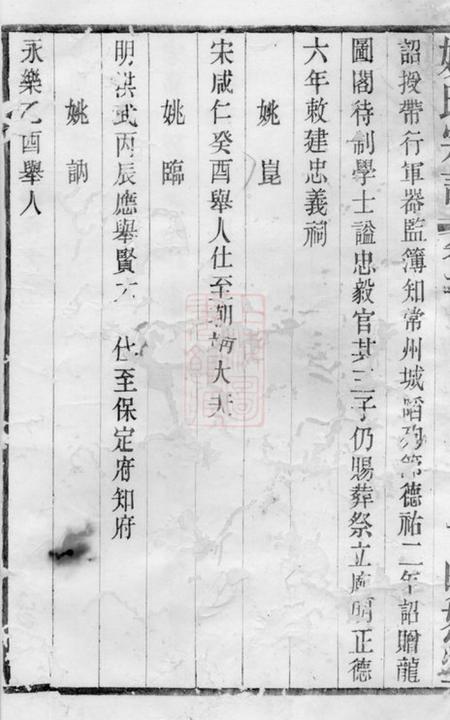 詔授帶行軍器監簿知常州城陷殉節德祐二年詔贈龍
圖閣待制學士謚忠毅官其三子仍賜葬祭立廟明正德
六年敕建忠義祠
姚崑
宋咸仁癸酉舉人仕至朝請大夫
姚臨
明洪武丙辰應舉賢才 仕至保定府知府
姚訥
永樂乙酉舉人